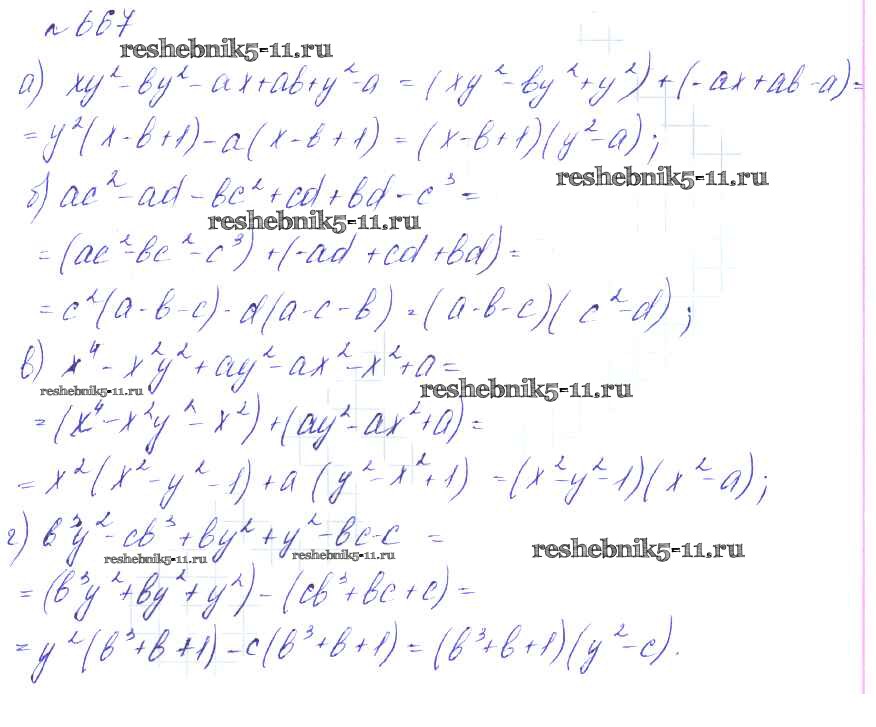 №667
reshebnik5-11.ru
а) xy² - by² - ax + ab + y² - a = (xy² - by² + y²) + (-ax + ab - a) =
= y²(x - b + 1) - a(x - b + 1) = (x - b + 1)(y² - a);
reshebnik5-11.ru
б) ac² - ad - bc² + cd + bd - c³ =
reshebnik5-11.ru
= (ac² - bc² - c³) + (-ad + cd + bd) =
= c²(a - b - c) - d(a - c - b) = (a - b - c)(c² - d);
в) x⁴ - x²y² + ay² - ax² - x² + a =
reshebnik5-11.ru reshebnik5-11.ru
= (x⁴ - x²y² - x²) + (ay² - ax² + a) =
= x²(x² - y² - 1) + a(y² - x² + 1) = (x² - y² - 1)(x² - a);
г) b³y² - cb³ + by² + y² - bc - c =
reshebnik5-11.ru reshebnik5-11.ru reshebnik5-11.ru
= (b³y² + by² + y²) - (cb³ + bc + c) =
= y²(b³ + b + 1) - c(b³ + b + 1) = (b³ + b + 1)(y² - c).